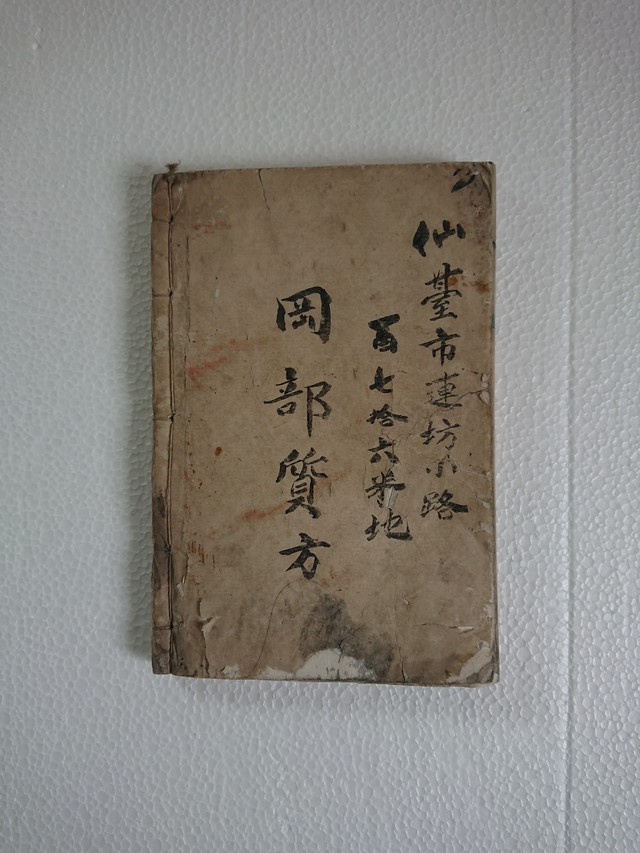 仙臺市連坊小路
百七拾六番地
岡部質方